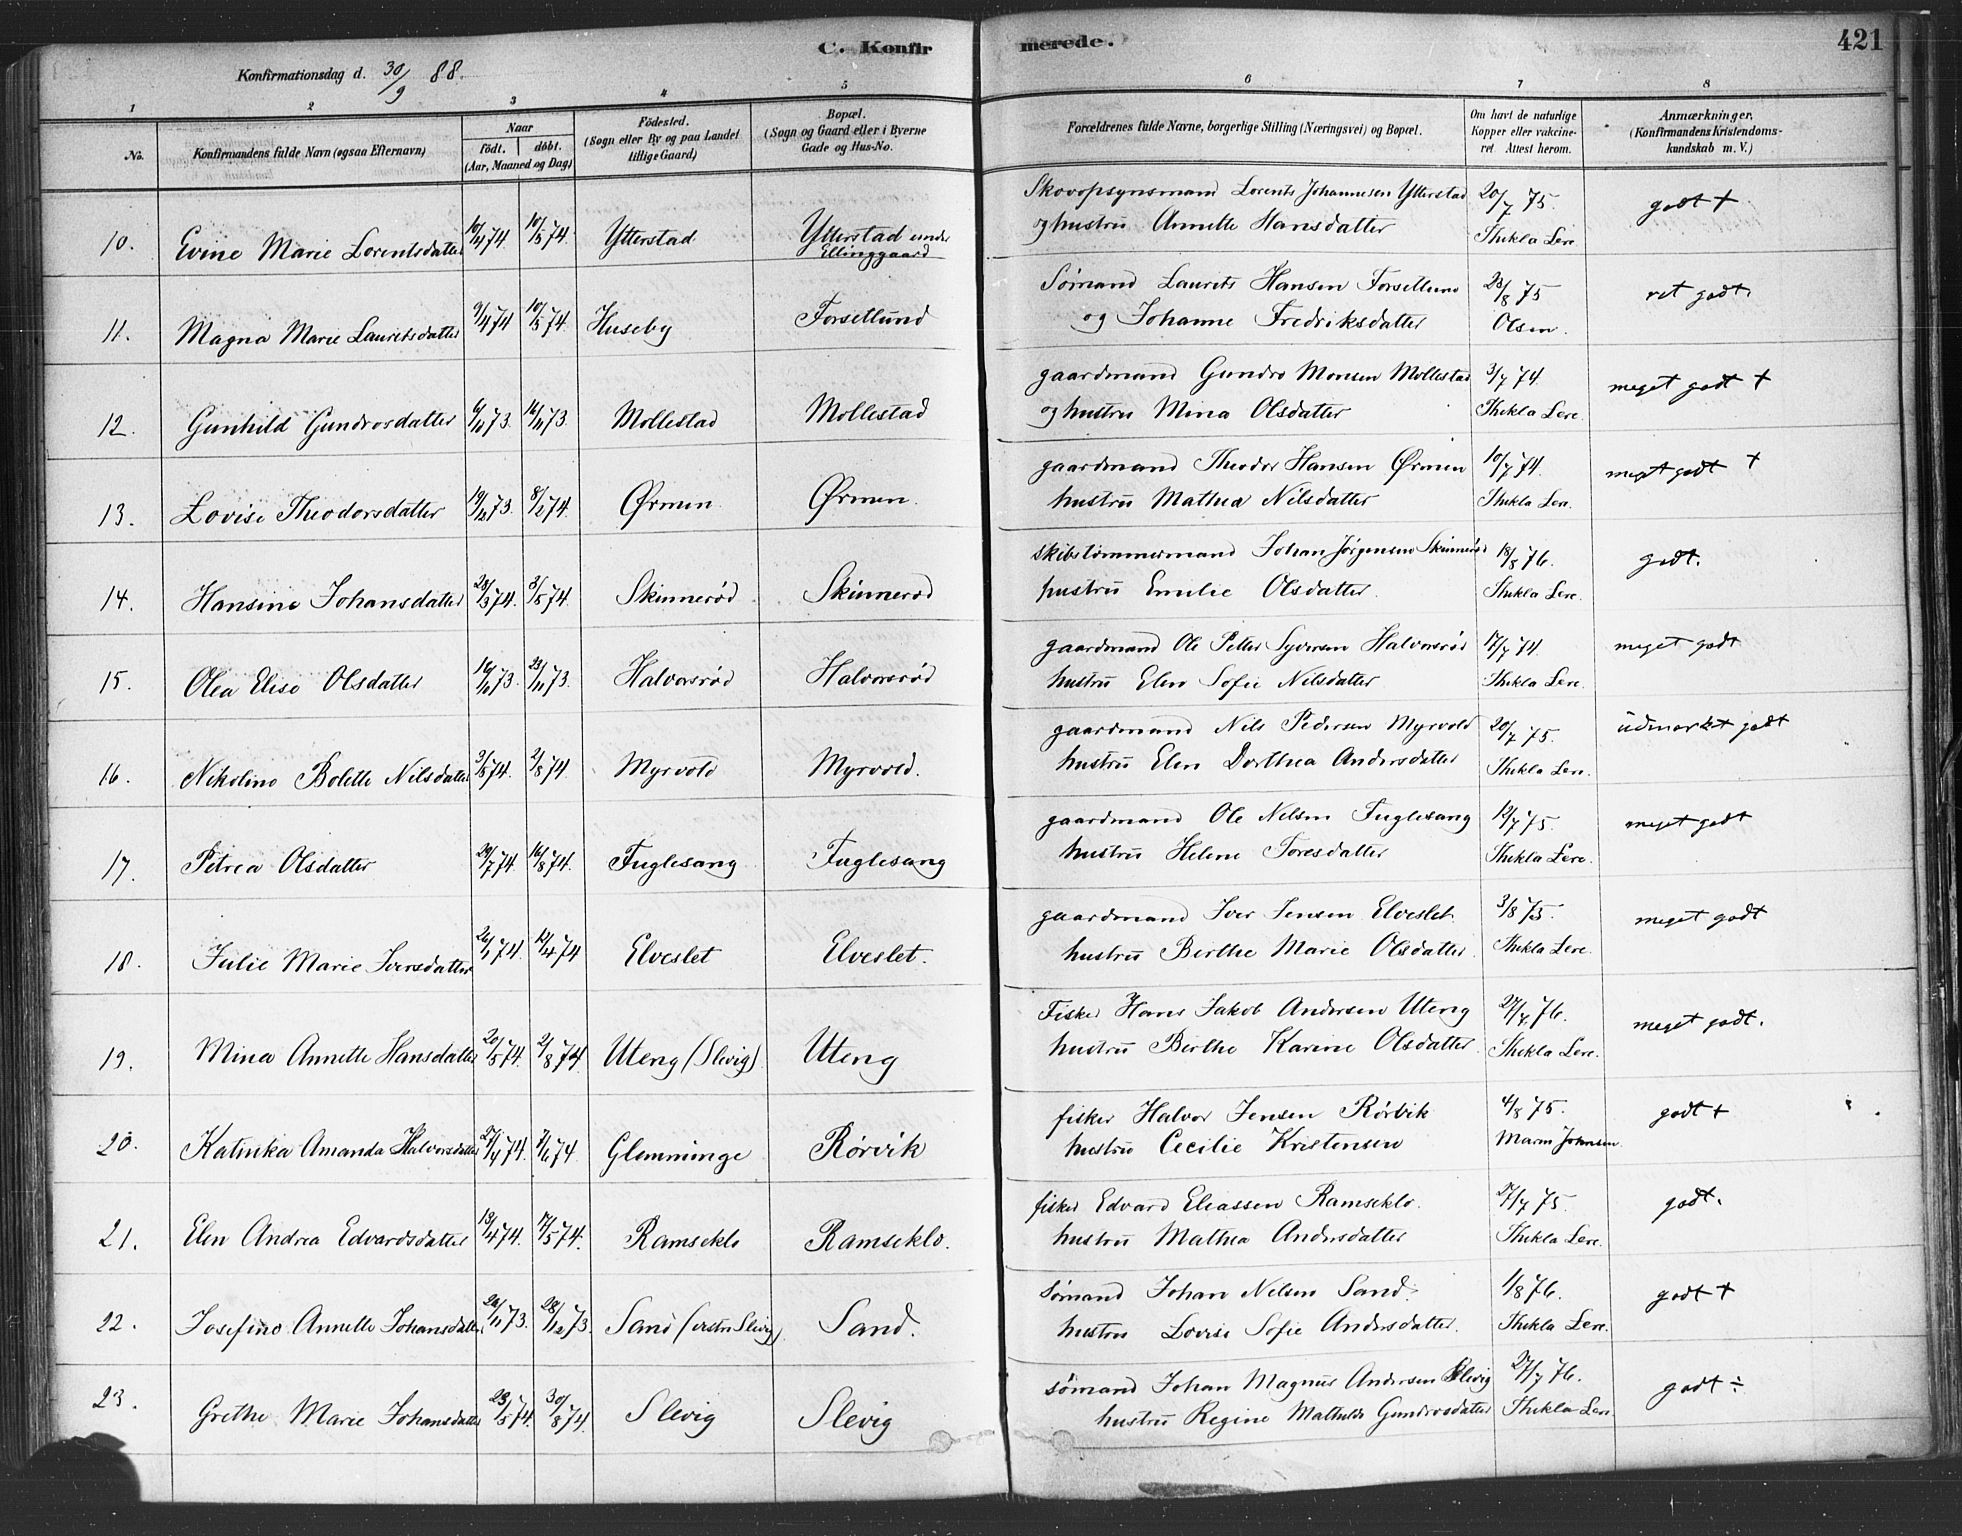 C. Konfirmerede.
421
Konfirmationsdag d. 30/9 88.
1 2 3 4 5 6 7 8
No.
Konfirmandens fulde Navn (ogsaa Efternavn)
Naar
födt. döbt.
(Aar, Maaned og Dag)
Födested.
(Sogn eller By og paa Landet
tillige Gaard)
Bopæl.
(Sogn og Gaard eller i Byerne
Gade og Hus-No.
Forældrenes fulde Navne, borgerlige Stilling (Næringsvei) og Bopæl.
Om havt de naturlige
Kopper eller vakcine-
ret. Attest herom.
Anmærkninger.
(Konfirmandens Kristendoms-
kundskab m. V.)
10. Evine Marie Lorentsdatter 10/4 74. 10/5 74. Ytterstad Ytterstad under
Ellinggaard
Skovopsynsmand Lorents Johannesen Ytterstad 20/7 75. godt +
og hustru Annette Hansdatter Thekla Lere
11. Magna Marie Lauritsdatter 9/4 74 10/5 74. Huseby Forsetlund
Sømand Laurits Hansen Forsetlund 23/8 75 ret godt.
og Johanne Fredriksdatter Olsen.
12. Gunhild Gundrosdatter 73. 16/11 73. Mollestad Mollestad
gaardmand Gundro Monsen Mollestad 3/7 74. meget godt +
og hustru Mina Olsdatter Thekla Lere.
13. Lovise Theodorsdatter 19/12 73. 8/2 74. Ørmen Ørmen.
gaardmand Theodor Hansen Ørmen 10/7 74. meget godt +
hustru Mathea Nilsdatter Thekla Lere.
14. Hansine Johansdatter 28/3 74. 3/5 74. Skinnerød Skinnerød
skibstømmermand Johan Jørgensen Skinnerød 18/8 76. godt.
hustru Emilie Olsdatter. Thekla Lere.
15. Olea Elise Olsdatter 16/10 73. 23/11 73. Halvorsrød Halvorsrød
gaardmand Ole Petter Syversen Halvorsrød 17/7 74. meget godt
hustru Elen Sofie Nilsdatter. Thekla Lere.
16. Nikoline Bolette Nilsdatter 3/5 74. 2/8 74. Myrvold Myrvold.
gaardmand Nils Pedersen Myrvold 20/7 75. üdmærket godt
hustru Elen Dorthea Andersdatter Thekla Lere.
17. Petrea Olsdatter 20/7 74. 16/8 74. Fuglesang Fuglesang
gaardmand Ole Nilsen Fuglesang 12/7 75. meget godt
hustru Helene Toresdatter Thekla Lere.
18. Julie Marie Iversdatter 26/1 74. 12/4 74 Elveslet Elveslet.
gaardmand Iver Jensen Elveslet. 3/8 75. meget godt
hustru Berthe Marie Olsdatter. Thekla Lere.
19. Mina Annette Hansdatter 20/5 74. 2/8 74. Uteng (Slevig) Uteng
Fisker Hans Jakob Andersen Uteng 27/7 76. meget godt.
hustru Berthe Karine Olsdatter. Thekla Lere.
20. Katinka Amanda Halvorsdatter 27/4 74. 74. Glemminge Rørvik
fisker Halvor Jensen Rørvik 4/8 75. godt +
hustru Cecilie Kristensen Maren Johnsen.
21. Elen Andrea Edvardsdatter 13/4 74. 17/5 74. Ramseklo Ramseklo.
fisker Edvard Eliassen Ramseklo. 27/7 75. godt.
hustru Mathea Andersdatter Thekla Lere.
22. Josefine Annette Johansdatter 26/11 73. 28/12 73. Sand (vestre Slevig) Sand.
sømand Johan Nilsen Sand. 1/8 76. godt +
hustru Lovise Sofie Andersdatter. Thekla Lere.
23. Grethe Marie Johansdatter 23/5 74. 30/8 74. Slevig Slevig
sømand Johan Magnus Andersen Slevig 27/7 76. godt ÷
hustru Regine Mathilde Gundrosdatter Thekla Lere.